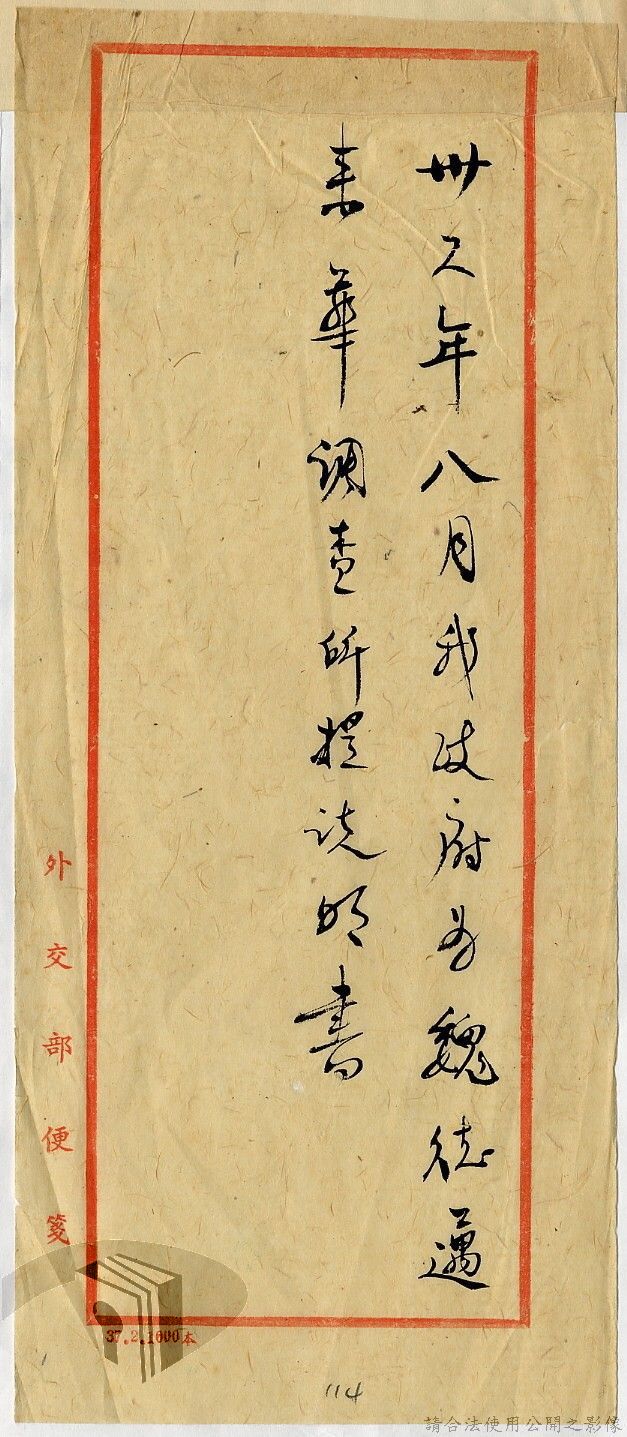 卅六年八月我政府为魏德邁
来華調查所提说明書
外交部便箋
37.2.1600本
114
請合法使用公開之影像